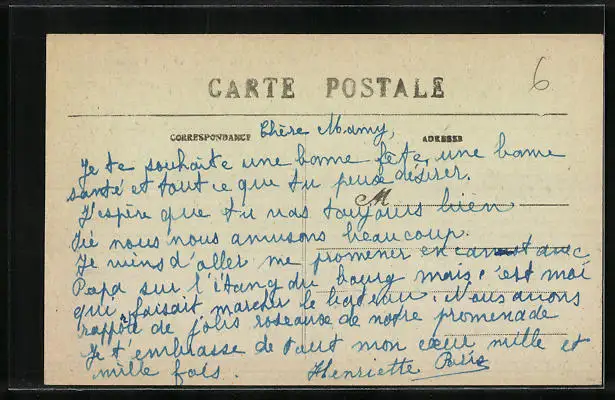 6
CARTE POSTALE
CORRESPONDANCE
ADRESSE
Chère Mamy,
Je te souhaite une bonne fête, une bonne
santé et tout ce que tu peux désirer.
M
J'espère que tu vas toujours bien
Ici nous nous amusons beaucoup.
Je viens d'aller me promener en canot avec
Papa sur l'étang du bourg mais c'est moi
qui faisait marcher le bateau. Nous avons
rapporté de jolis roseaux de notre promenade
Je t'embrasse de tout mon cœur mille et
mille fois.
Henriette Paris